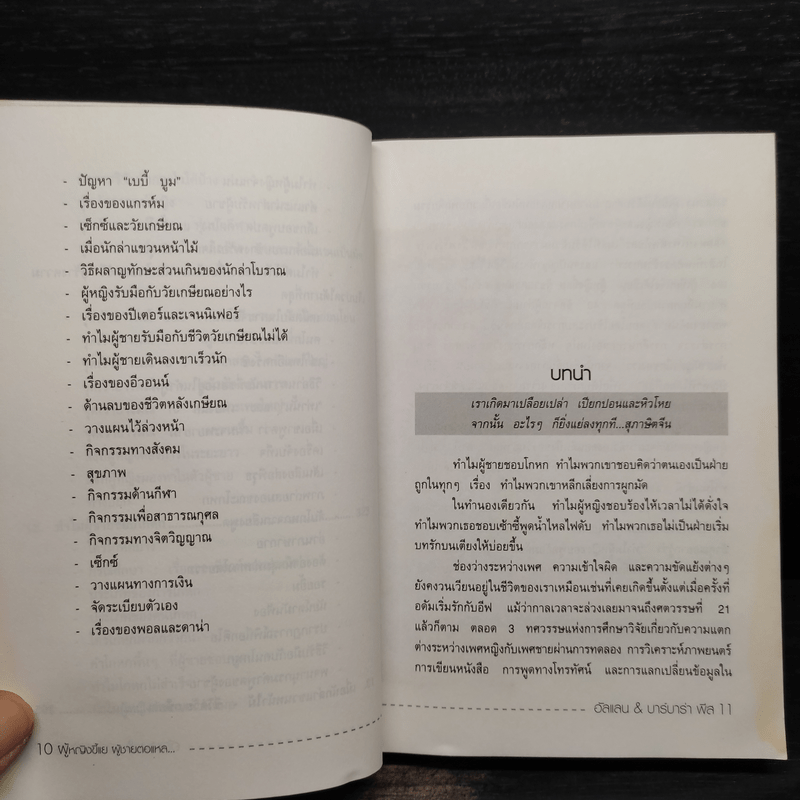 - ปัญหา "เบบี้ บูม"
- เรื่องของแกรห์ม
- เซ็กซ์และวัยเกษียณ
- เมื่อนักล่าแขวนหน้าไม้
- วิธีผลาญทักษะส่วนเกินของนักล่าโบราณ
- ผู้หญิงรับมือกับวัยเกษียณอย่างไร
- เรื่องของปีเตอร์และเจนนิเฟอร์
- ทำไมผู้ชายรับมือกับชีวิตวัยเกษียณไม่ได้
- ทำไมผู้ชายเดินลงเขาเร็วนัก
- เรื่องของอีวอนน์
- ด้านลบของชีวิตหลังเกษียณ
- วางแผนไว้ล่วงหน้า
- กิจกรรมทางสังคม
- สุขภาพ
- กิจกรรมด้านกีฬา
- กิจกรรมเพื่อสาธารณกุศล
- กิจกรรมทางจิตวิญญาณ
- เซ็กซ์
- วางแผนทางการเงิน
- จัดระเบียบตัวเอง
- เรื่องของพอลและดาน่า
10 ผู้หญิงขี้แย ผู้ชายตอแหล...
บทนำ
เราเกิดมาเปลือยเปล่า เปียกปอนและหิวโหย
จากนั้น อะไรๆ ก็ยิ่งแย่ลงทุกที...สุภาษิตจีน
ทำไมผู้ชายชอบโกหก ทำไมพวกเขาชอบคิดว่าตนเองเป็นฝ่าย
ถูกในทุกๆ เรื่อง ทำไมพวกเขาหลีกเลี่ยงการผูกมัด
ในทำนองเดียวกัน ทำไมผู้หญิงชอบร้องไห้เวลาไม่ได้ดั่งใจ
ทำไมพวกเธอชอบเซ้าซี้พูดน้ำไหลไฟดับ ทำไมพวกเธอไม่เป็นฝ่ายเริ่ม
บทรักบนเตียงให้บ่อยขึ้น
ช่องว่างระหว่างเพศ ความเข้าใจผิด และความขัดแย้งต่างๆ
ยังคงวนเวียนอยู่ในชีวิตของเราเหมือนเช่นที่เคยเกิดขึ้นตั้งแต่เมื่อครั้งที่
อดัมเริ่มรักกับอีฟ แม้ว่ากาลเวลาจะล่วงเลยมาจนถึงศตวรรษที่ 21
แล้วก็ตาม ตลอด 3 ทศวรรษแห่งการศึกษาวิจัยเกี่ยวกับความแตก
ต่างระหว่างเพศหญิงกับเพศชายผ่านการทดลอง การวิเคราะห์ภาพยนตร์
การเขียนหนังสือ การพูดทางโทรทัศน์ และการแลกเปลี่ยนข้อมูลใน
อัลแลน & บาร์บาร่า พีส 11